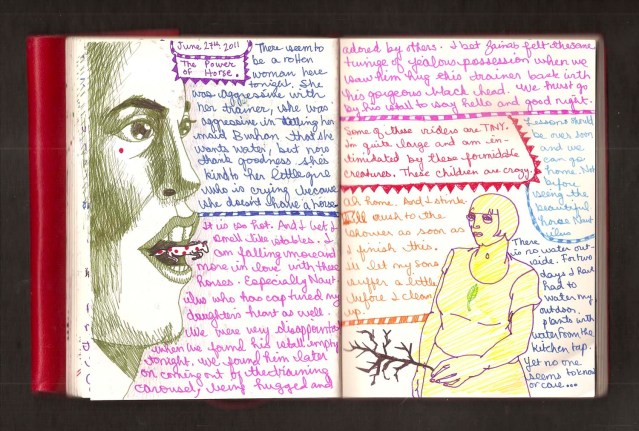 June 27th, 2011
The Power
of Horse.
There seem to
be a rotten
woman here
tonight. She
was aggressive with
her trainer, she was
aggressive in telling her
maid Bushan that she
wants water, but now
thank goodness shes
kind to her little girl
who is crying because
she doesnt have a horse
It is so hot. And I bet I
smell like stables. I
am falling more and
more in love with these
horses. Especially Nawt
ilus who has captured my
daughters heart as well.
We were very disappointed
when we found his stall empty
tonight. We found him later
on coming out of the training
carousel, being hugged and
adored by others. I bet Zainab felt the same
twinge of jealous possession when we
saw him hug this trainer back with
his gorgeous black head. We must go
by his stall to say hello and good night.
Some of these riders are TINY.
Im quite large and am in-
timidated by these formidable
creatures. These children are crazy.
Lessons should
be over soon
and we
can go
home. Not
before
seeing the
beautiful
horse Nawt
ilus
Ah home. And I stink.
Ill rush to the
shower as soon as
I finish this.
Ill let my sons
suffer a little
before I clean
up.
There
is no water out-
side. For two
days I have
had to
water my
outdoor
plants with
water from the
kitchen tap.
Yet no one
seems to know
or care...